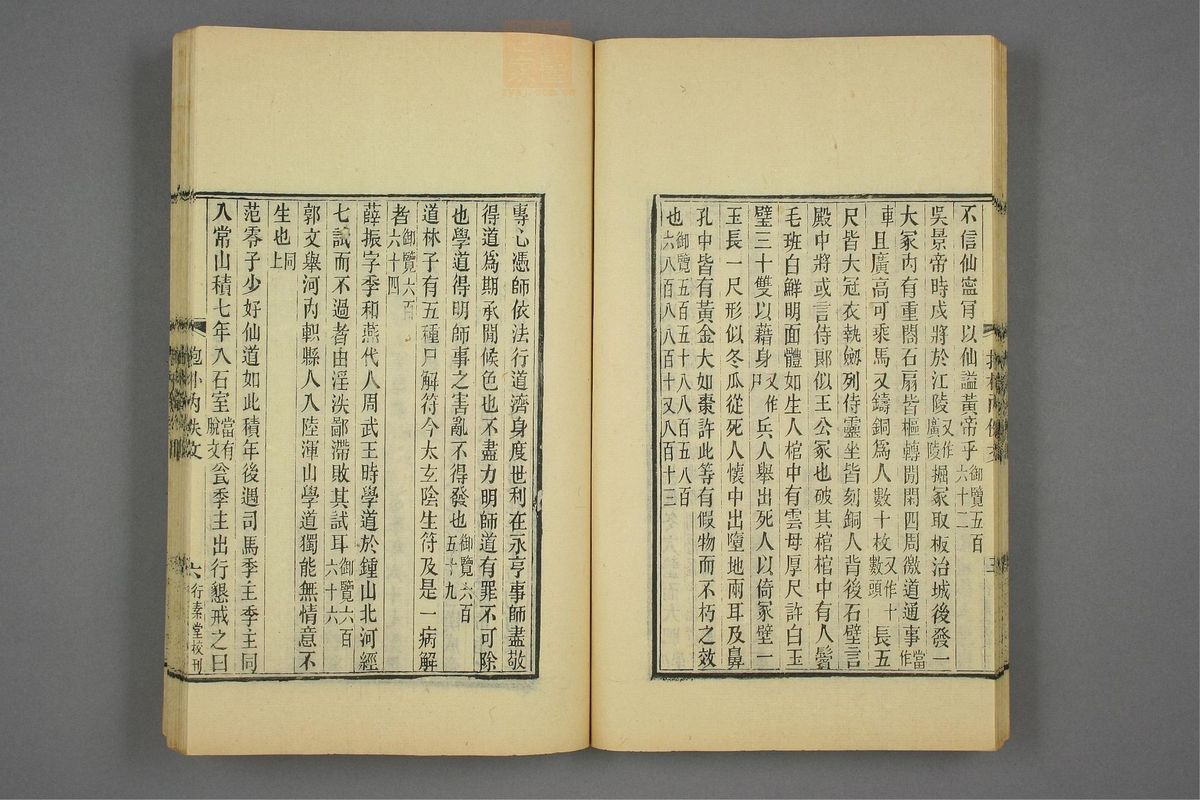 不信仙甯肎以仙謚黃帝乎御覽五百六十二
吳景帝時戍將於江陵又作廣陵掘冢取板治城後發一
大冢內有重閤石扇皆樞轉開閉四周徼道通事當作
車且廣高可乘馬又鑄銅爲人數十枚又作十數頭長五
尺皆大冠衣執劒列侍靈坐皆刻銅人背後石壁言
殿中將或言侍郎似王公冢也破其棺棺中有人鬢
毛班白鮮明面體如生人棺中有雲母厚尺許白玉
璧三十雙以藉身又作尸兵人舉出死人以倚冢壁一
玉長一尺形似冬瓜從死人懷中出墮地兩耳及鼻
孔中皆有黃金大如棗許此等有假物而不朽之效
也御覽五百五十八八百五八百六八百八八百十又八百十三
專心憑師依法行道濟身度世利在永亨事師盡敬
得道爲期承閒候色也不盡力明師道有罪不可除
也學道得明師事之害亂不得發也御覽六百五十九
道林子有五種尸解符今太玄陰生符及是一病解
者御覽六百六十四
薛振字季和燕代人周武王時學道於鍾山北河經
七試而不過者由淫泆鄙滯敗其試耳御覽六百六十六
郭文舉河內軹縣人入陸渾山學道獨能無情意不
生也同上
范零子少好仙道如此積年後遇司馬季主季主同
入常山積七年入石室當有脫文瓮季主出行懇戒之曰
抱朴內佚文
六
行素堂校刊